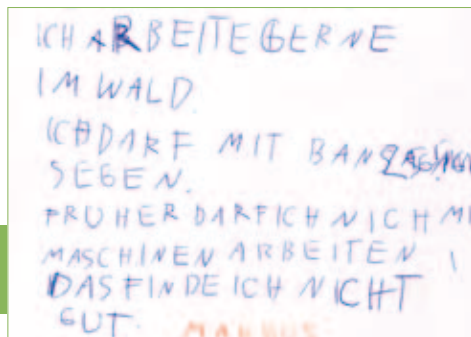 ICH ARBEITE GERNE
IM WALD.
ICH DARF MIT
SEGEN.
FRUHER DARF ICH NICH MI
MASCHINEN ARBEITEN
DAS FINDE ICH NICHT
GUT.